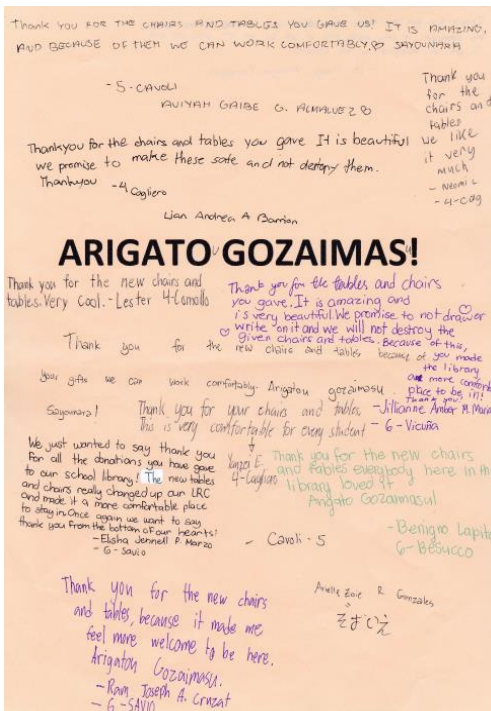 Thank you FOR THE CHAIRS AND TABLES YOU GAVE US! IT IS AMAZING,
AND BECAUSE OF THEM WE CAN WORK COMFORTABLY♡ SAYOUNARA
-5-CAVOLI
AVIYAH GAIBE G. ALMALVEZ♡
Thank you
for the
chairs and
tables
we like
it very
much
- Naomi L
- 4-Cag
Thankyou for the chairs and tables you gave It is beautiful
we promise to make these safe and not destory them.
Thankyou -4 Cagliero
Lian Andrea A Barrion
ARIGATO GOZAIMAS!
Thank you for the new chairs and
tables. Very cool. - Lester 4-Comollo
Thank you for the tables and chairs
you gave. It is amazing and
is very beautiful. We promise to not drawer
write on it and we will not destroy the
given chairs and tables. Because of this,
you made
the library
a more comfortable
place to be in!
Thank you!
-Jillianne Amber M. Maria
- 6 -Vicuña
Thank you for the new chairs and tables because of
your gifts we can work comfortably. Arigatou gozaimasu.
Sayounara!
Thank you for your chairs and tables.
This is very comfortable for every student
E.
4-Cagliero
We just wanted to say thank you
For all the donations you have gave
to our school library! The new tables
and chairs really changed up our LRC
and made it a more comfortable place
to stay in. Once again we want to say
thank you from the bottom of our hearts!
-Elisha Jennell P. Marzo
- 6 - Savio
Thank you for the new chairs
and tables everybody here in the
library loved it
Arigato Gozaimasu!
-Benigno Lapit
6-Besucco
- Cavoli - 5
Thank you for the new chairs
and tables, because it made me
feel more welcome to be here.
Arigatou Gozaimasu.
-Ram Joseph A. Cruzat
- 6 -SAVIO
Arielle Zoie R. Gonzales